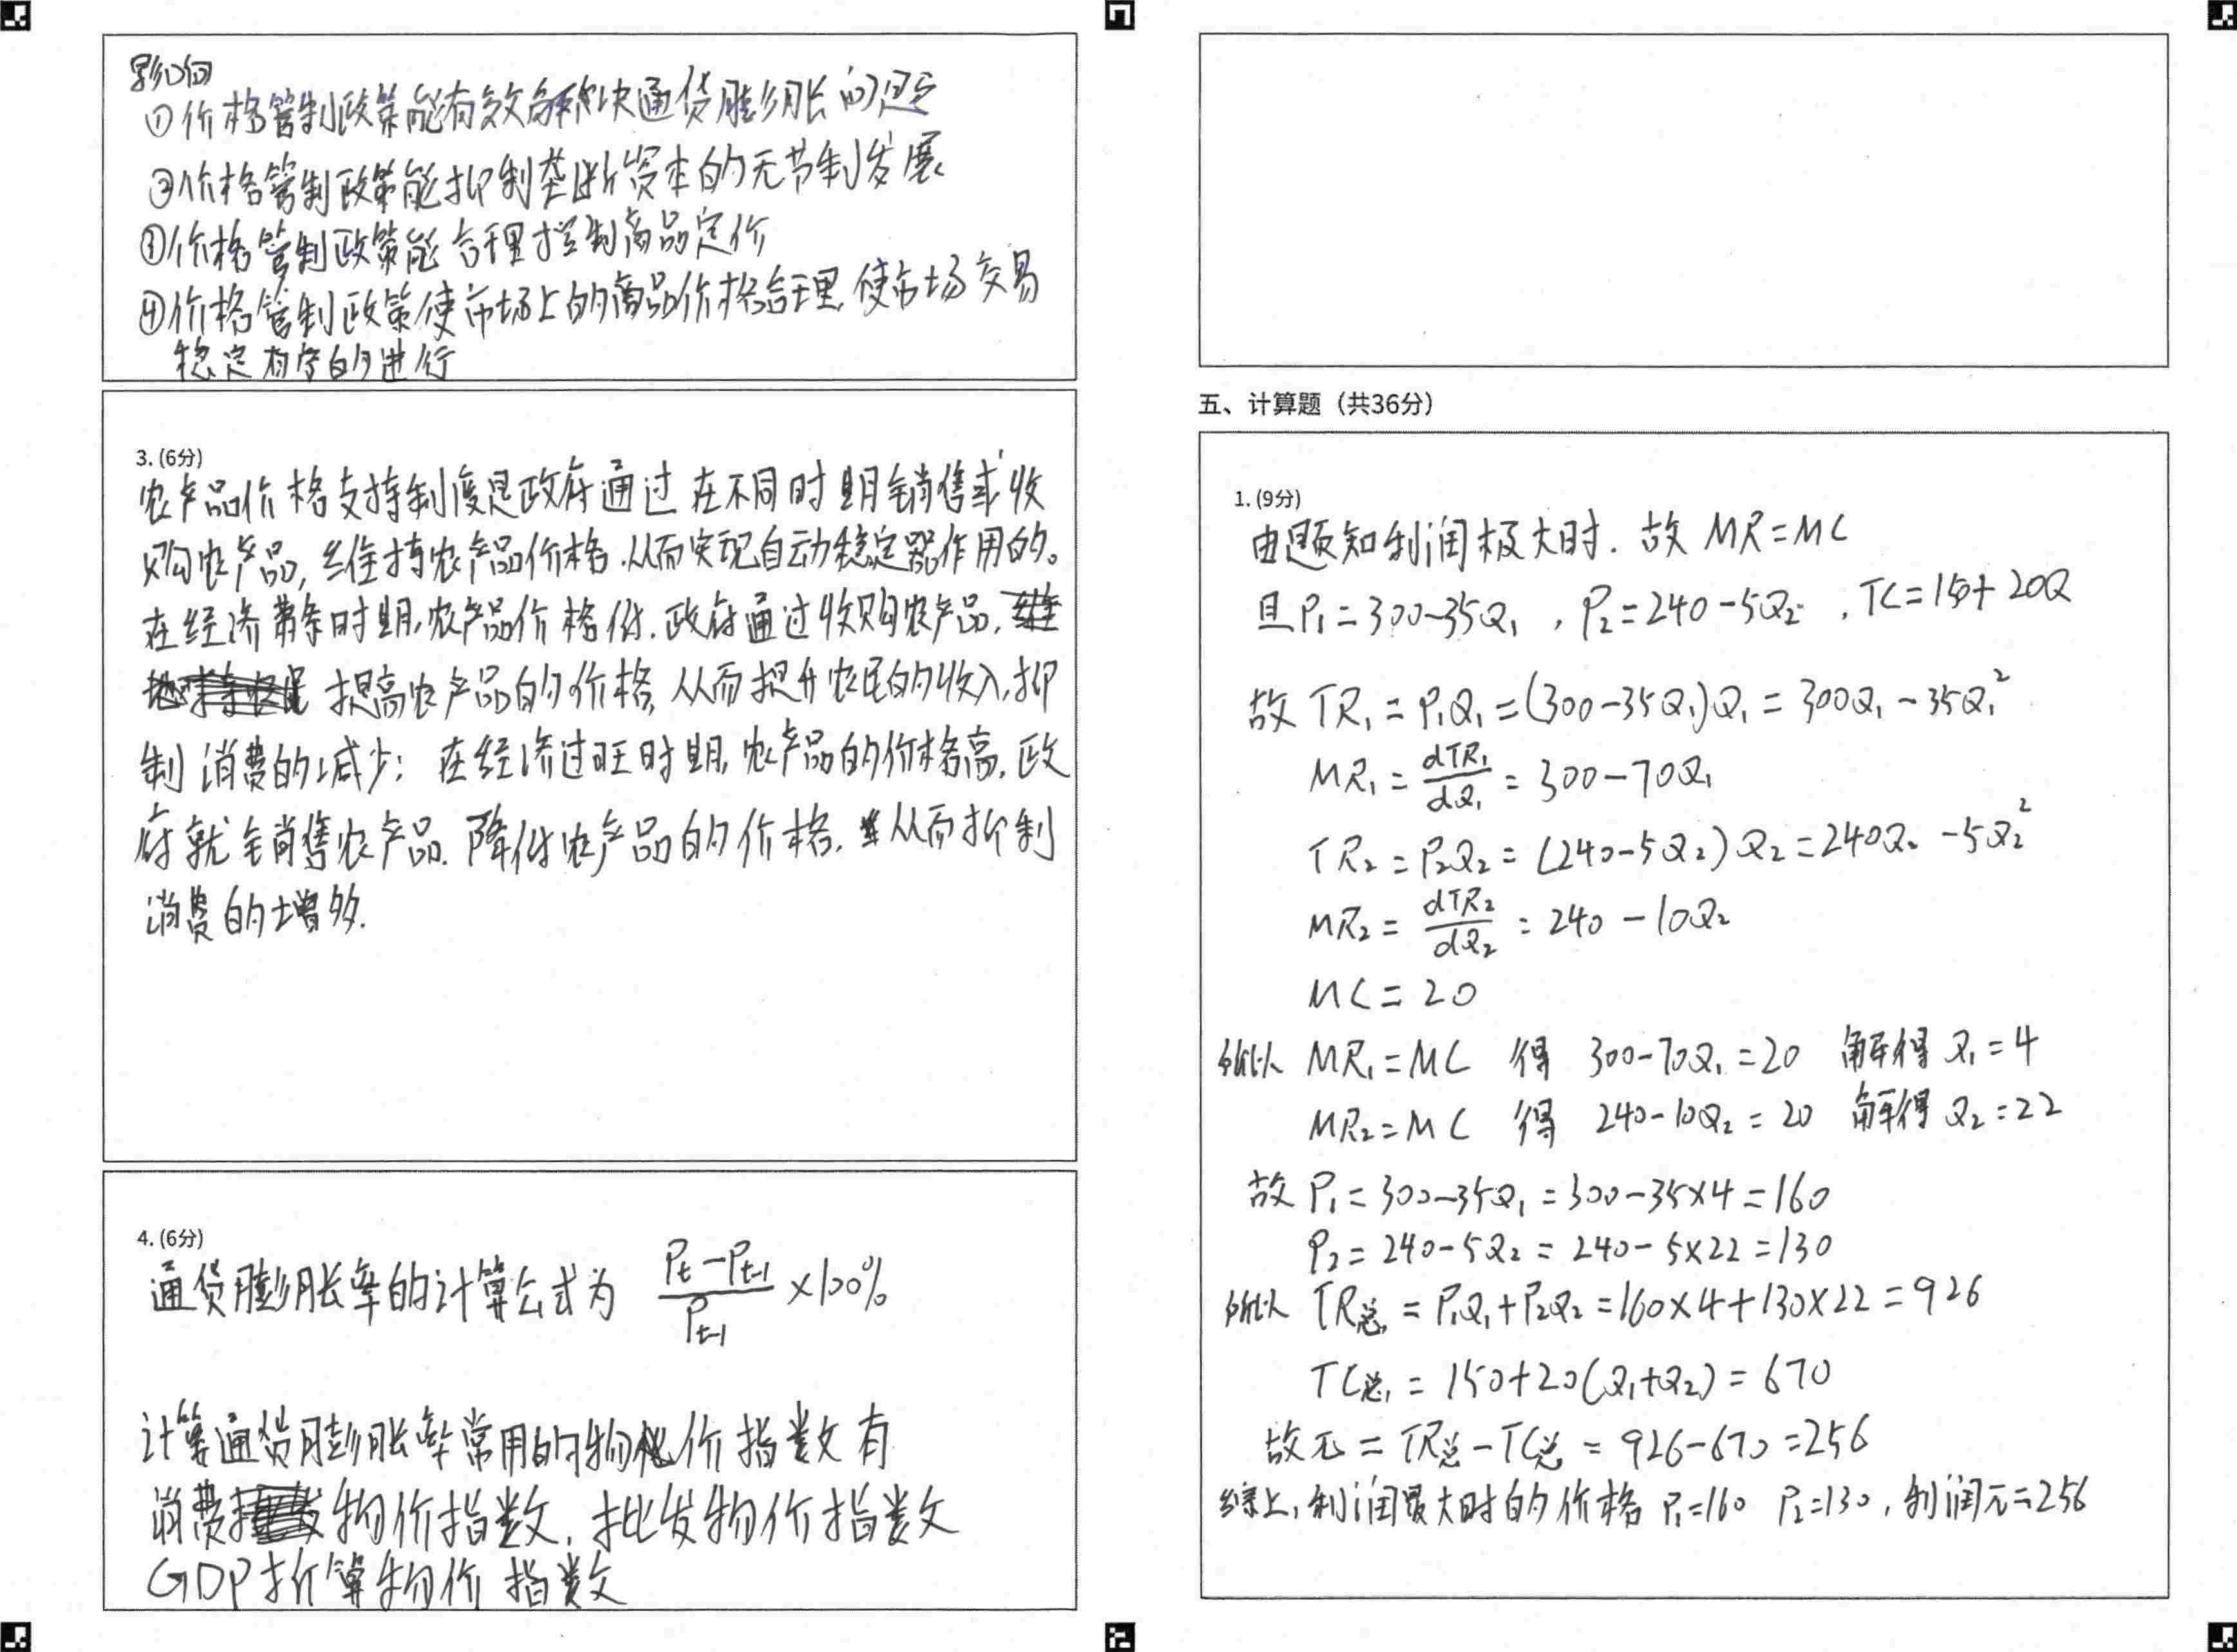 影响
①价格管制政策能有效解决通货膨胀问题
②价格管制政策能抑制垄断资本的无节制发展
③价格管制政策能合理控制商品定价
④价格管制政策使市场上的商品价格合理,使市场交易
稳定有序的进行
3. (6分)
农产品价格支持制度是政府通过在不同时期销售或收
购农产品,维持农产品价格.从而实现自动稳定器作用的。
在经济萧条时期,农产品价格低.政府通过收购农产品,
提高农产品的价格,从而提升农民的收入,抑
制消费的减少;在经济过旺时期,农产品的价格高.政
府就销售农产品.降低农产品的价格.从而抑制
消费的增多.
4. (6分)
通货膨胀率的计算公式为 (Pt-Pt-1)/Pt-1 ×100%
计算通货膨胀率常用的物价指数有
消费物价指数,批发物价指数
GDP折算物价指数
五、计算题(共36分)
1. (9分)
由题知利润极大时.故 MR=MC
且P₁=300-35Q₁,P₂=240-5Q₂,TC=150+20Q
故 TR₁=P₁Q₁=(300-35Q₁)Q₁=300Q₁-35Q₁²
MR₁=dTR₁/dQ₁=300-70Q₁
TR₂=P₂Q₂=(240-5Q₂)Q₂=240Q₂-5Q₂²
MR₂=dTR₂/dQ₂=240-10Q₂
MC=20
所以 MR₁=MC 得 300-70Q₁=20 解得 Q₁=4
MR₂=MC 得 240-10Q₂=20 解得 Q₂=22
故 P₁=300-35Q₁=300-35×4=160
P₂=240-5Q₂=240-5×22=130
所以 TR总=P₁Q₁+P₂Q₂=160×4+130×22=926
TC总=150+20(Q₁+Q₂)=670
故π=TR总-TC总=926-670=256
综上,利润最大时的价格 P₁=160 P₂=130,利润π=256